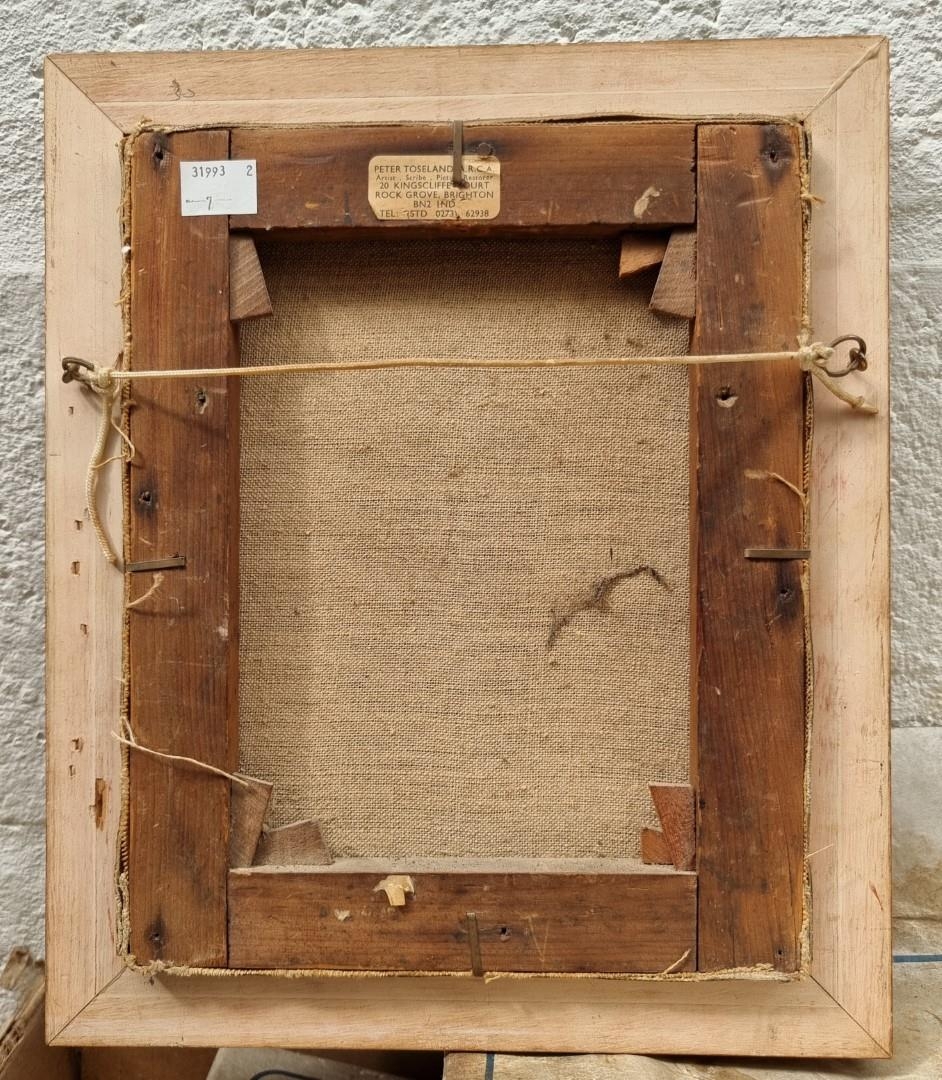 31993 2
7
PETER TOSELAND A.R.C.A.
Artist . Scribe . Restorer
20 KINGSCLIFFE COURT
ROCK GROVE, BRIGHTON
BN2 1ND
TEL: STD 0273 62938